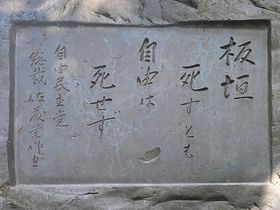 板垣
死すとも
自由は
死せず
自由民主党
総裁佐藤栄作書